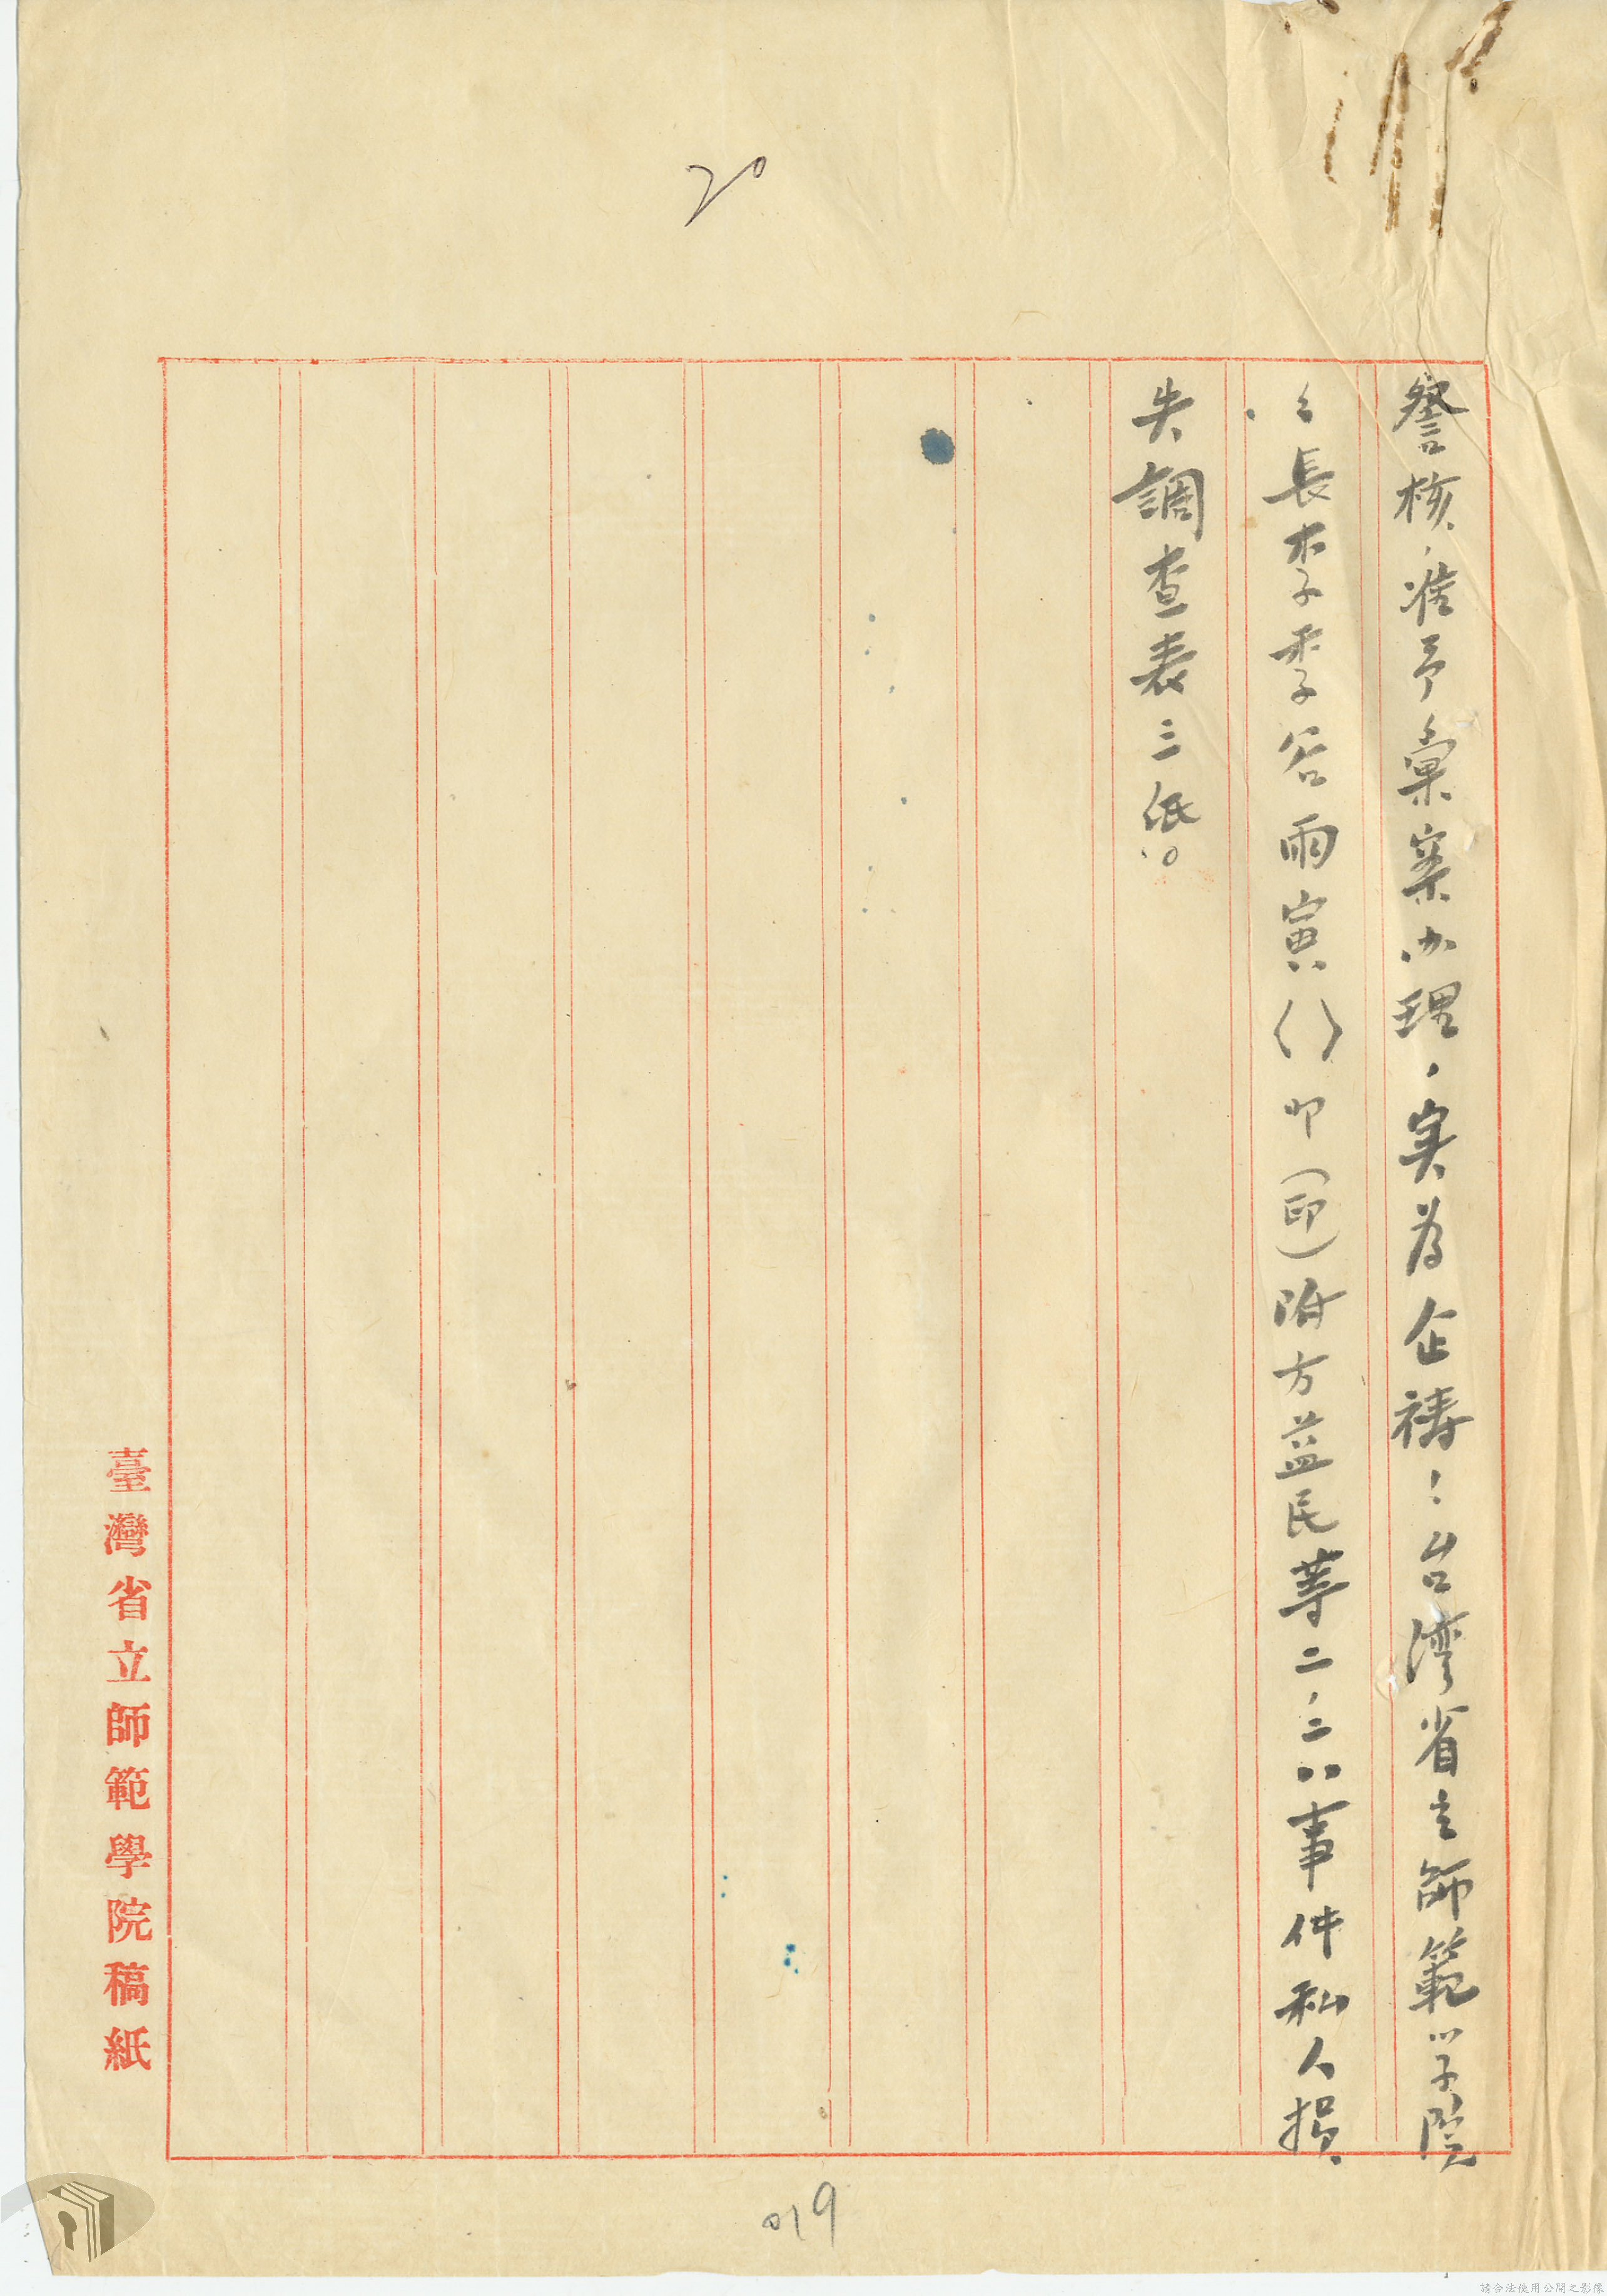 20
詧核，准予彙案办理，实為企禱！台湾省立師範学院
々長李季谷雨寅〈〉叩（印）附方益民等二，二八事件私人損
失調查表三紙。
臺灣省立師範學院稿紙
019
請合法使用公開之影像